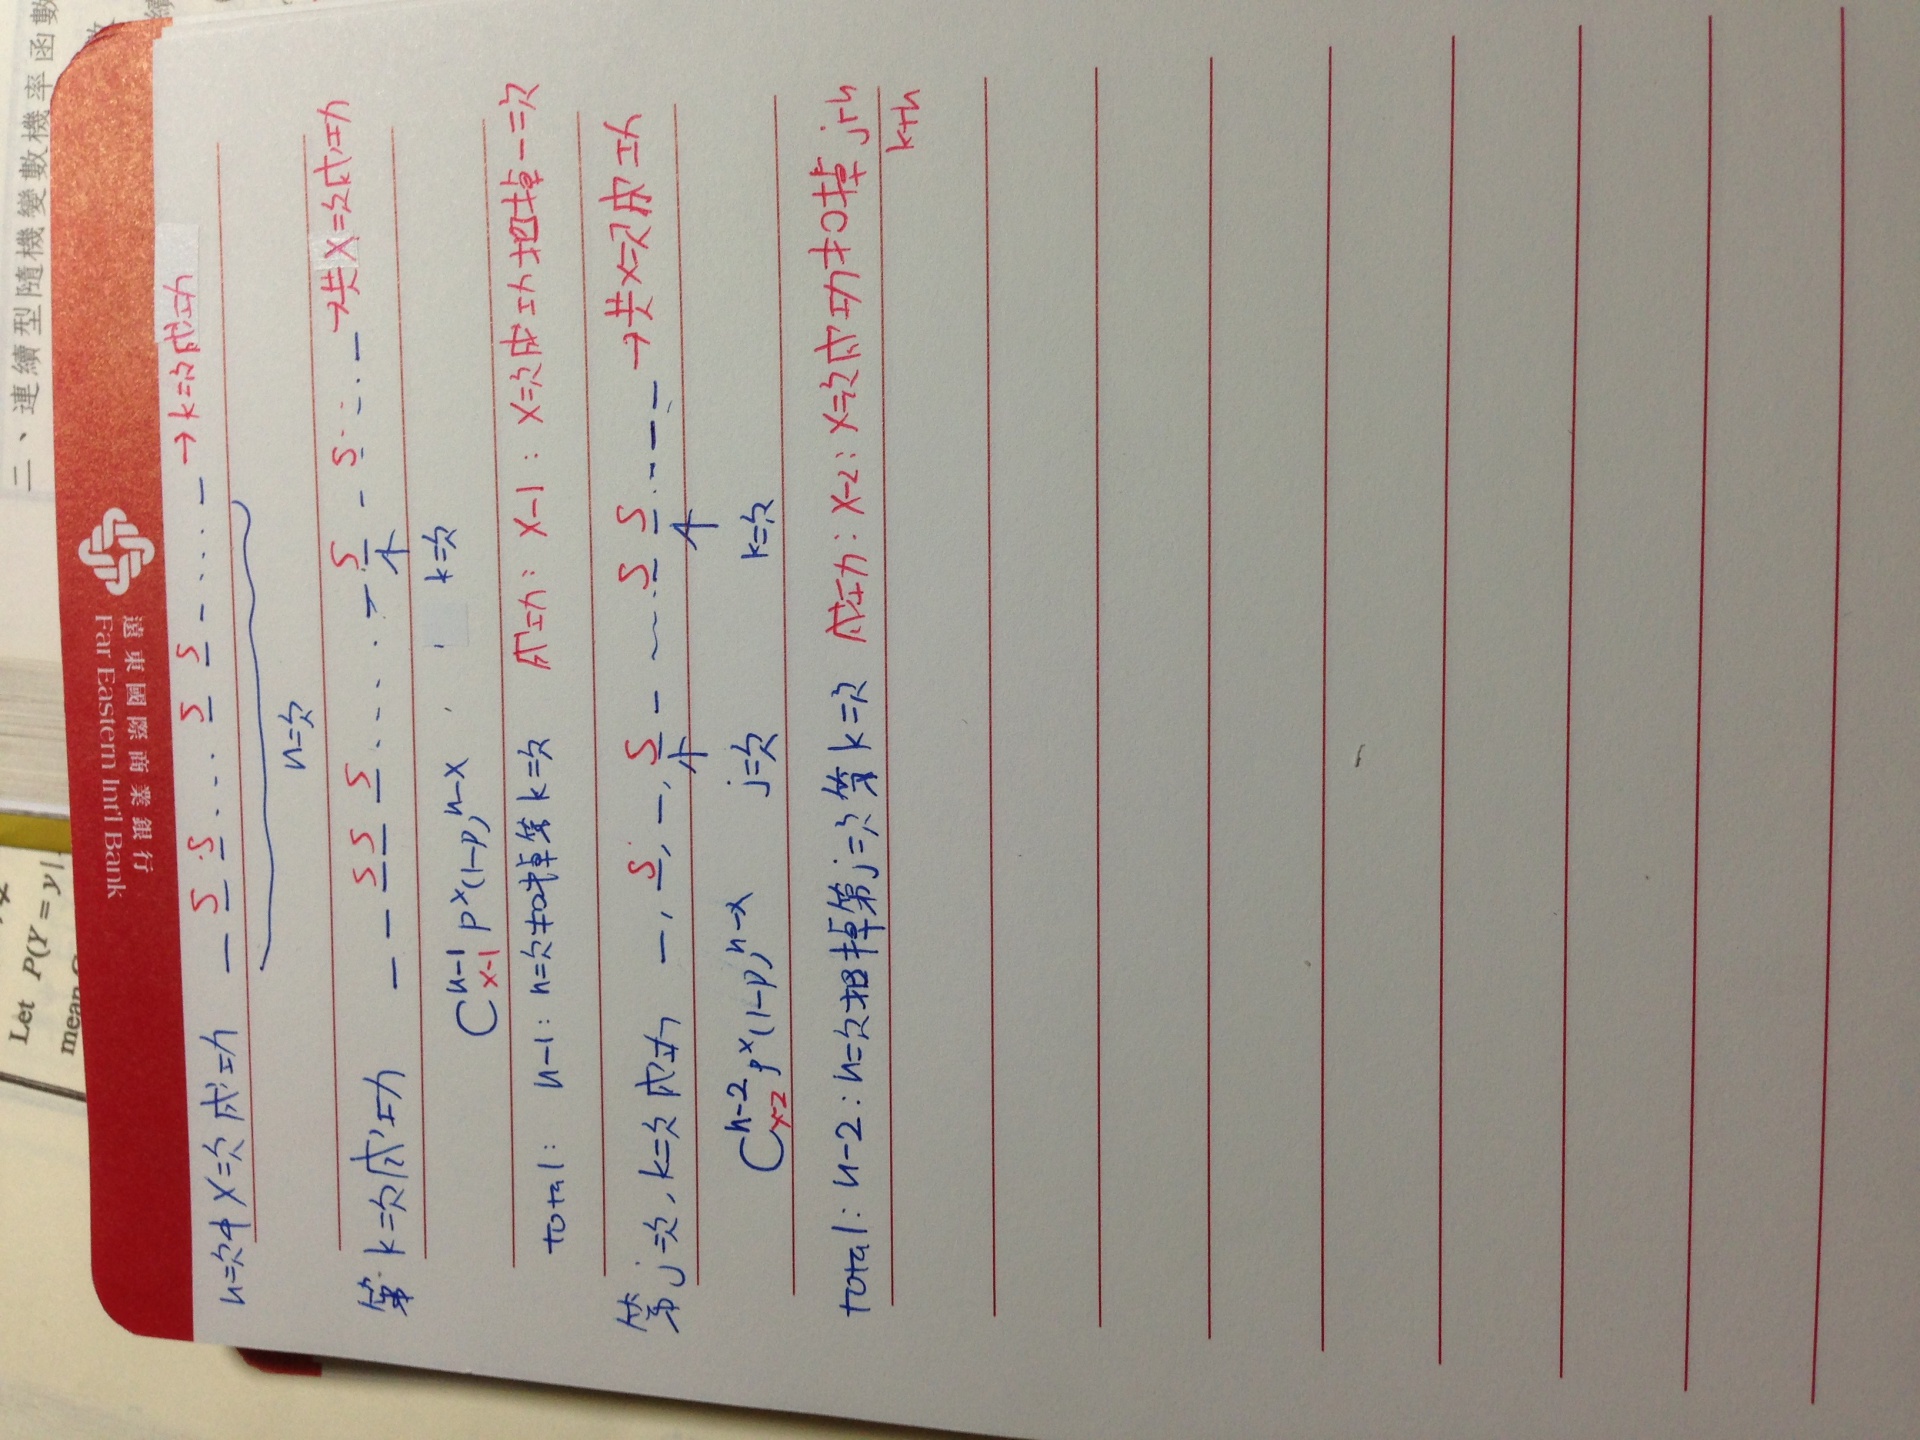 二、連續型隨機變數機率函數
Let P(Y=y|
遠東國際商業銀行
Far Eastern Int'l Bank
n次中 X次成功 _ S S ... S S _ .... _ → k次成功
n次
第k次成功 _ _ S S S .... _ S _ S ... _ → 共X次成功
↑
C n-1 x-1 p^x (1-p)^n-x k次
total: n-1: n次扣掉第k次 成功: X-1: X次成功扣掉一次
第j次, k次成功 _, S, _, S _ ... S S ... _ _ → 共X次成功
↑ ↑
C n-2 x-2 p^x (1-p)^n-x j次 k次
total: n-2: n次扣掉第j次第k次 成功: X-2: X次成功扣掉 j+h
k+h